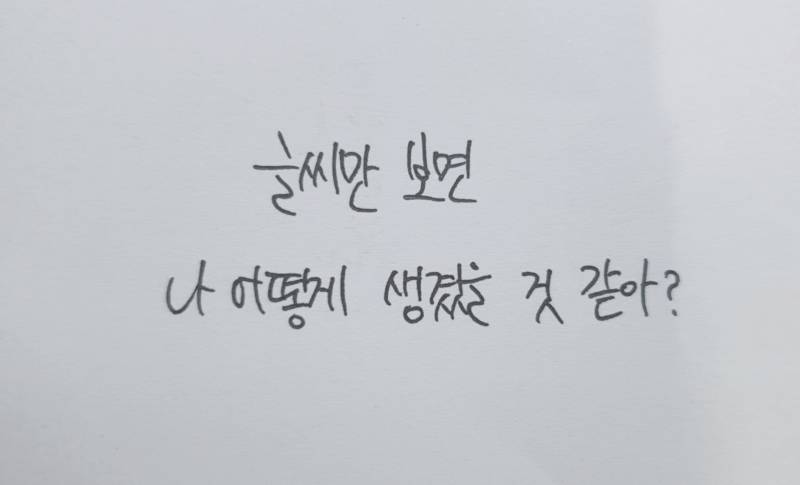 글씨만 보면
나 어떻게 생겼을 것 같아?